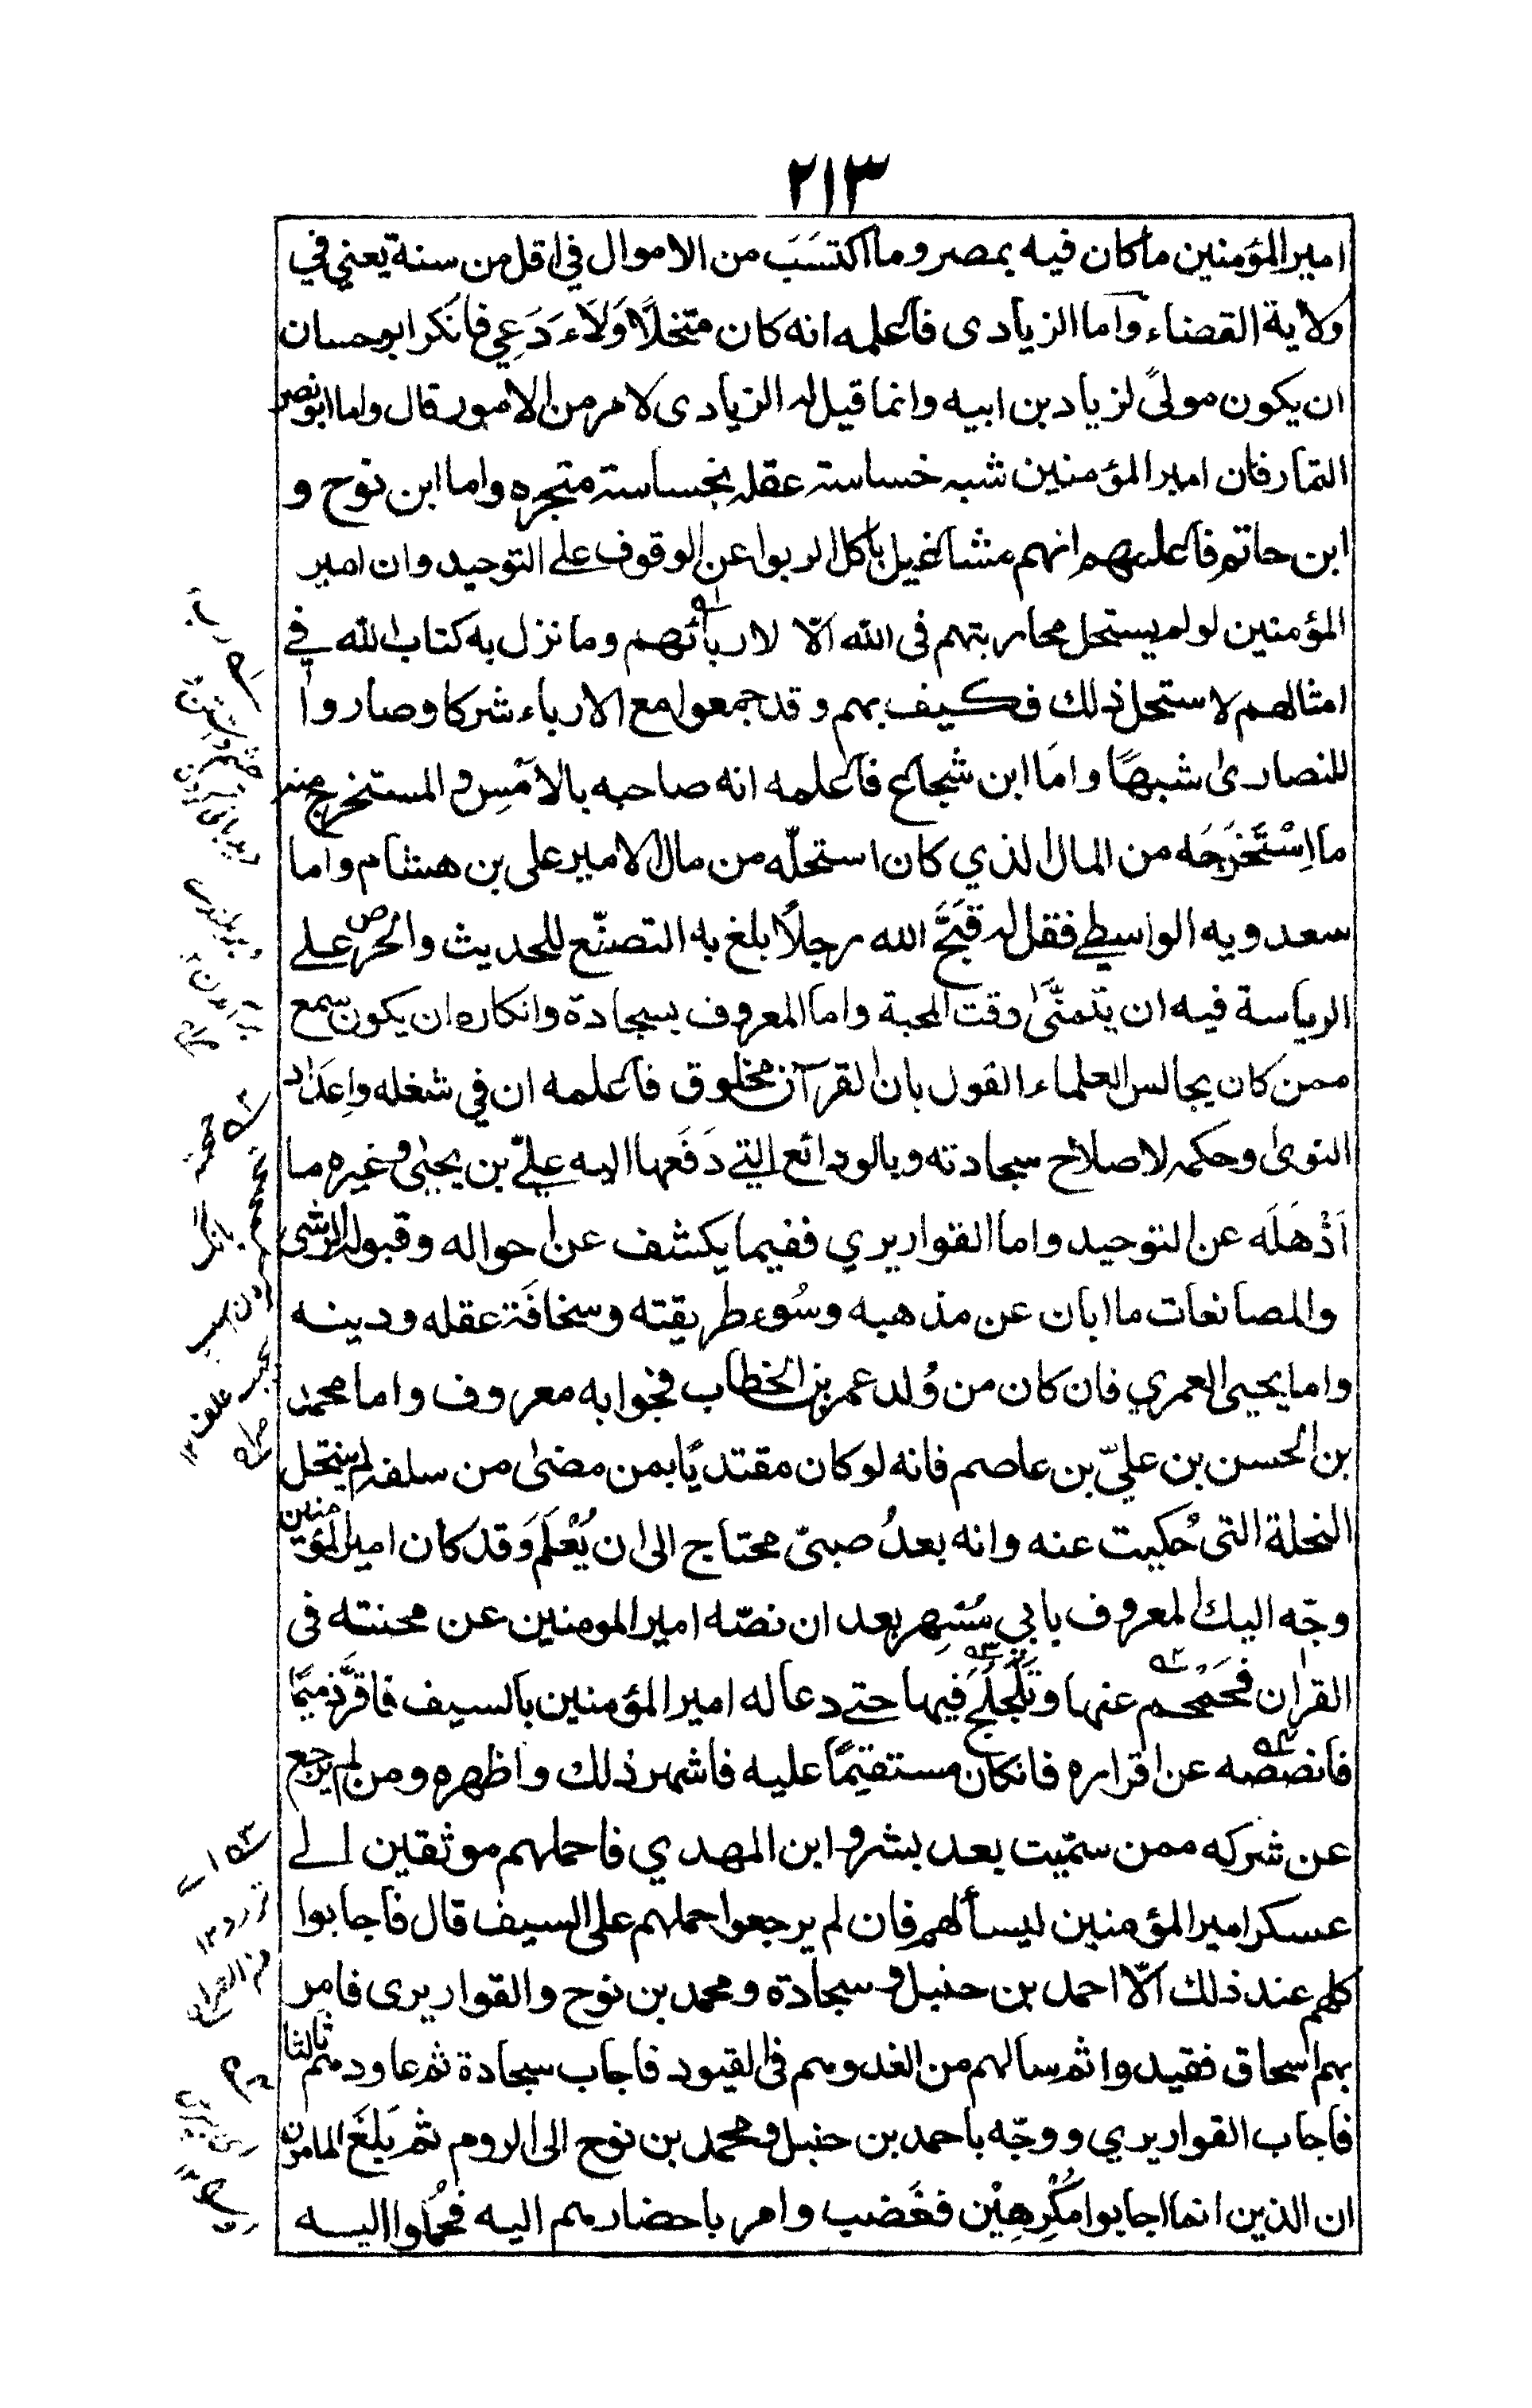 ٢١٣
امير المؤمنين ما كان فيه بمصر وما اكتسَبَ من الاموال في اقل من سنة يعني في
ولاية القضاء واما الزيادى فاعلمه انه كان متخلًا وَلَاءَ دَعِي فانكر ابو حسان
ان يكون مولىً لزياد بن ابيه وانما قيل له الزيادى لامر من الامور قال واما ابو نصر
التمار فان امير المؤمنين شبه خساسة عقله بخساسة متجره واما ابن نوح و
ابن حاتم فاعلمهم انهم مشاغيل باكل الربوا عن الوقوف على التوحيد وان امير
المؤمنين لو لم يستحل محاربتهم فى الله الّا لاربائهم وما نزل به كتاب الله في
امثالهم لاستحل ذلك فكيف بهم وقد جمعوا مع الارباء شركا وصاروا
للنصارى شبهًا واما ابن شجاع فاعلمه انه صاحبه بالامس و المستخرج منه
ما اِسْتَخرَجَه من المال الذي كان استحلّه من مال الامير على بن هشام واما
سعدويه الواسطي فقل له قَبَّح الله رجلًا بلغ به التصنّع للحديث والحرص على
الرياسة فيه ان يتمنّى وقت المحبة واما المعروف بسجادة وانكاره ان يكون سمع
ممن كان يجالس العلماء القول بان القرآن مخلوق فاعلمه ان في شغله واِعدَاد
النوى وحكمه لاصلاح سجادته وبالودائع التي دَفَعها اليه عليّ بن يحيى و غيره ما
اَذْهَلَه عن التوحيد واما القواريري ففيما يكشف عن احواله وقبوله الرشى
والمصانعات ما ابان عن مذهبه وسُوء طريقته وسخافَة عقله ودينه
واما يحيى العمري فان كان من وُلد عمر بن الخطاب فجوابه معروف واما محمد
بن الحسن بن عليّ بن عاصم فانه لو كان مقتديًا بمن مضى من سلفه لم ينتحل
النحلة التى حُكيت عنه وانه بعدُ صبىّ محتاج الى ان يُعْلَم وَقد كان امير المؤمنين
وجّه اليك المعروف بابي مُسْهِر بعد ان نصّه امير المومنين عن محنته فى
القران فحَمْحَم عنها وتَلَجْلَجَ فيها حتى دعا له امير المؤمنين بالسيف فاقرَّ ذميمًا
فانصصه عن اقراره فانكان مستقيمًا عليه فاشهر ذلك واظهره ومن لم يرجع
عن شركه ممن سمّيت بعد بشر و ابن المهدي فاحملهم موثقين الى
عسكر امير المؤمنين ليسألهم فان لم يرجعوا حملهم على السيف قال فاجابوا
كلهم عند ذلك الّا احمد بن حنبل و سجادة ومحمد بن نوح والقواريرى فامر
بهم اسحاق فقيدوا ثم سالهم من الغد وهم فى القيود فاجاب سجادة ثم عاودهم ثالثا
فاجاب القواريري ووجّه باحمد بن حنبل و محمد بن نوح الى الروم ثم بَلَغَ المامون
ان الذين انما اجابوا مُكْرِهِيْن فغَضب وامر باحضارهم اليه فحُملوا اليه